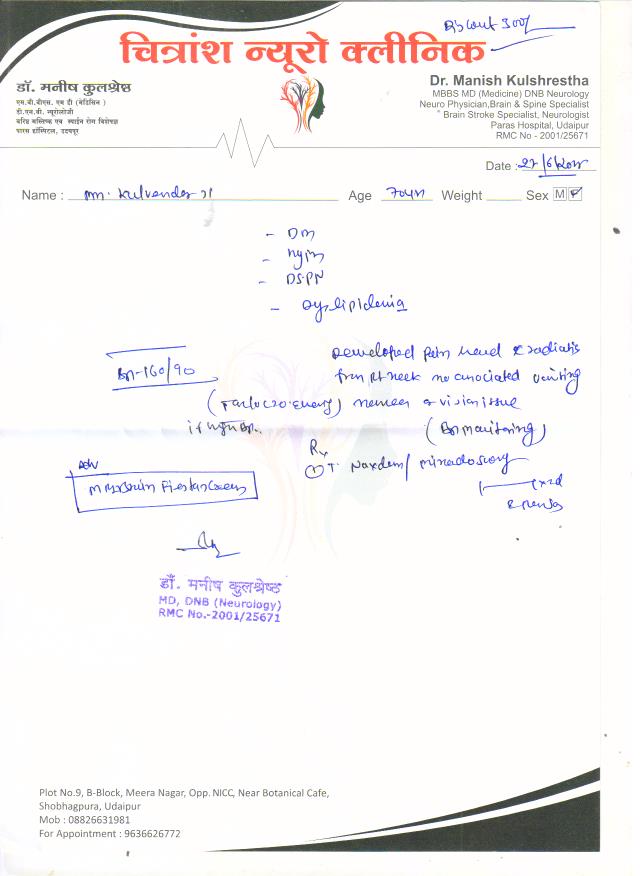 Discount 30%
चित्रांश न्यूरो क्लीनिक
डॉ. मनीष कुलश्रेष्ठ
एम.बी.बी.एस. एम डी (मेडिसिन)
डी.एन.बी. न्यूरोलॉजी
वरिष्ठ मस्तिष्क एवं स्पाईन रोग विशेषज्ञ
पारस हॉस्पिटल, उदयपुर
Dr. Manish Kulshrestha
MBBS MD (Medicine) DNB Neurology
Neuro Physician,Brain & Spine Specialist
Brain Stroke Specialist, Neurologist
Paras Hospital, Udaipur
RMC No - 2001/25671
Date :
Name : Kulvender Age 70 Weight Sex M F
- DM
- DSPN
- Dyslipidemia
BP-160/90
Developed pain head radiatis
from Rt neck no associated vomiting
vision issue
(BP monitoring)
Rx
① T. Naxdom /
Adv
MRI Brain
डॉ. मनीष कुलश्रेष्ठ
MD, DNB (Neurology)
RMC No.-2001/25671
Plot No.9, B-Block, Meera Nagar, Opp. NICC, Near Botanical Cafe,
Shobhagpura, Udaipur
Mob : 08826631981
For Appointment : 9636626772